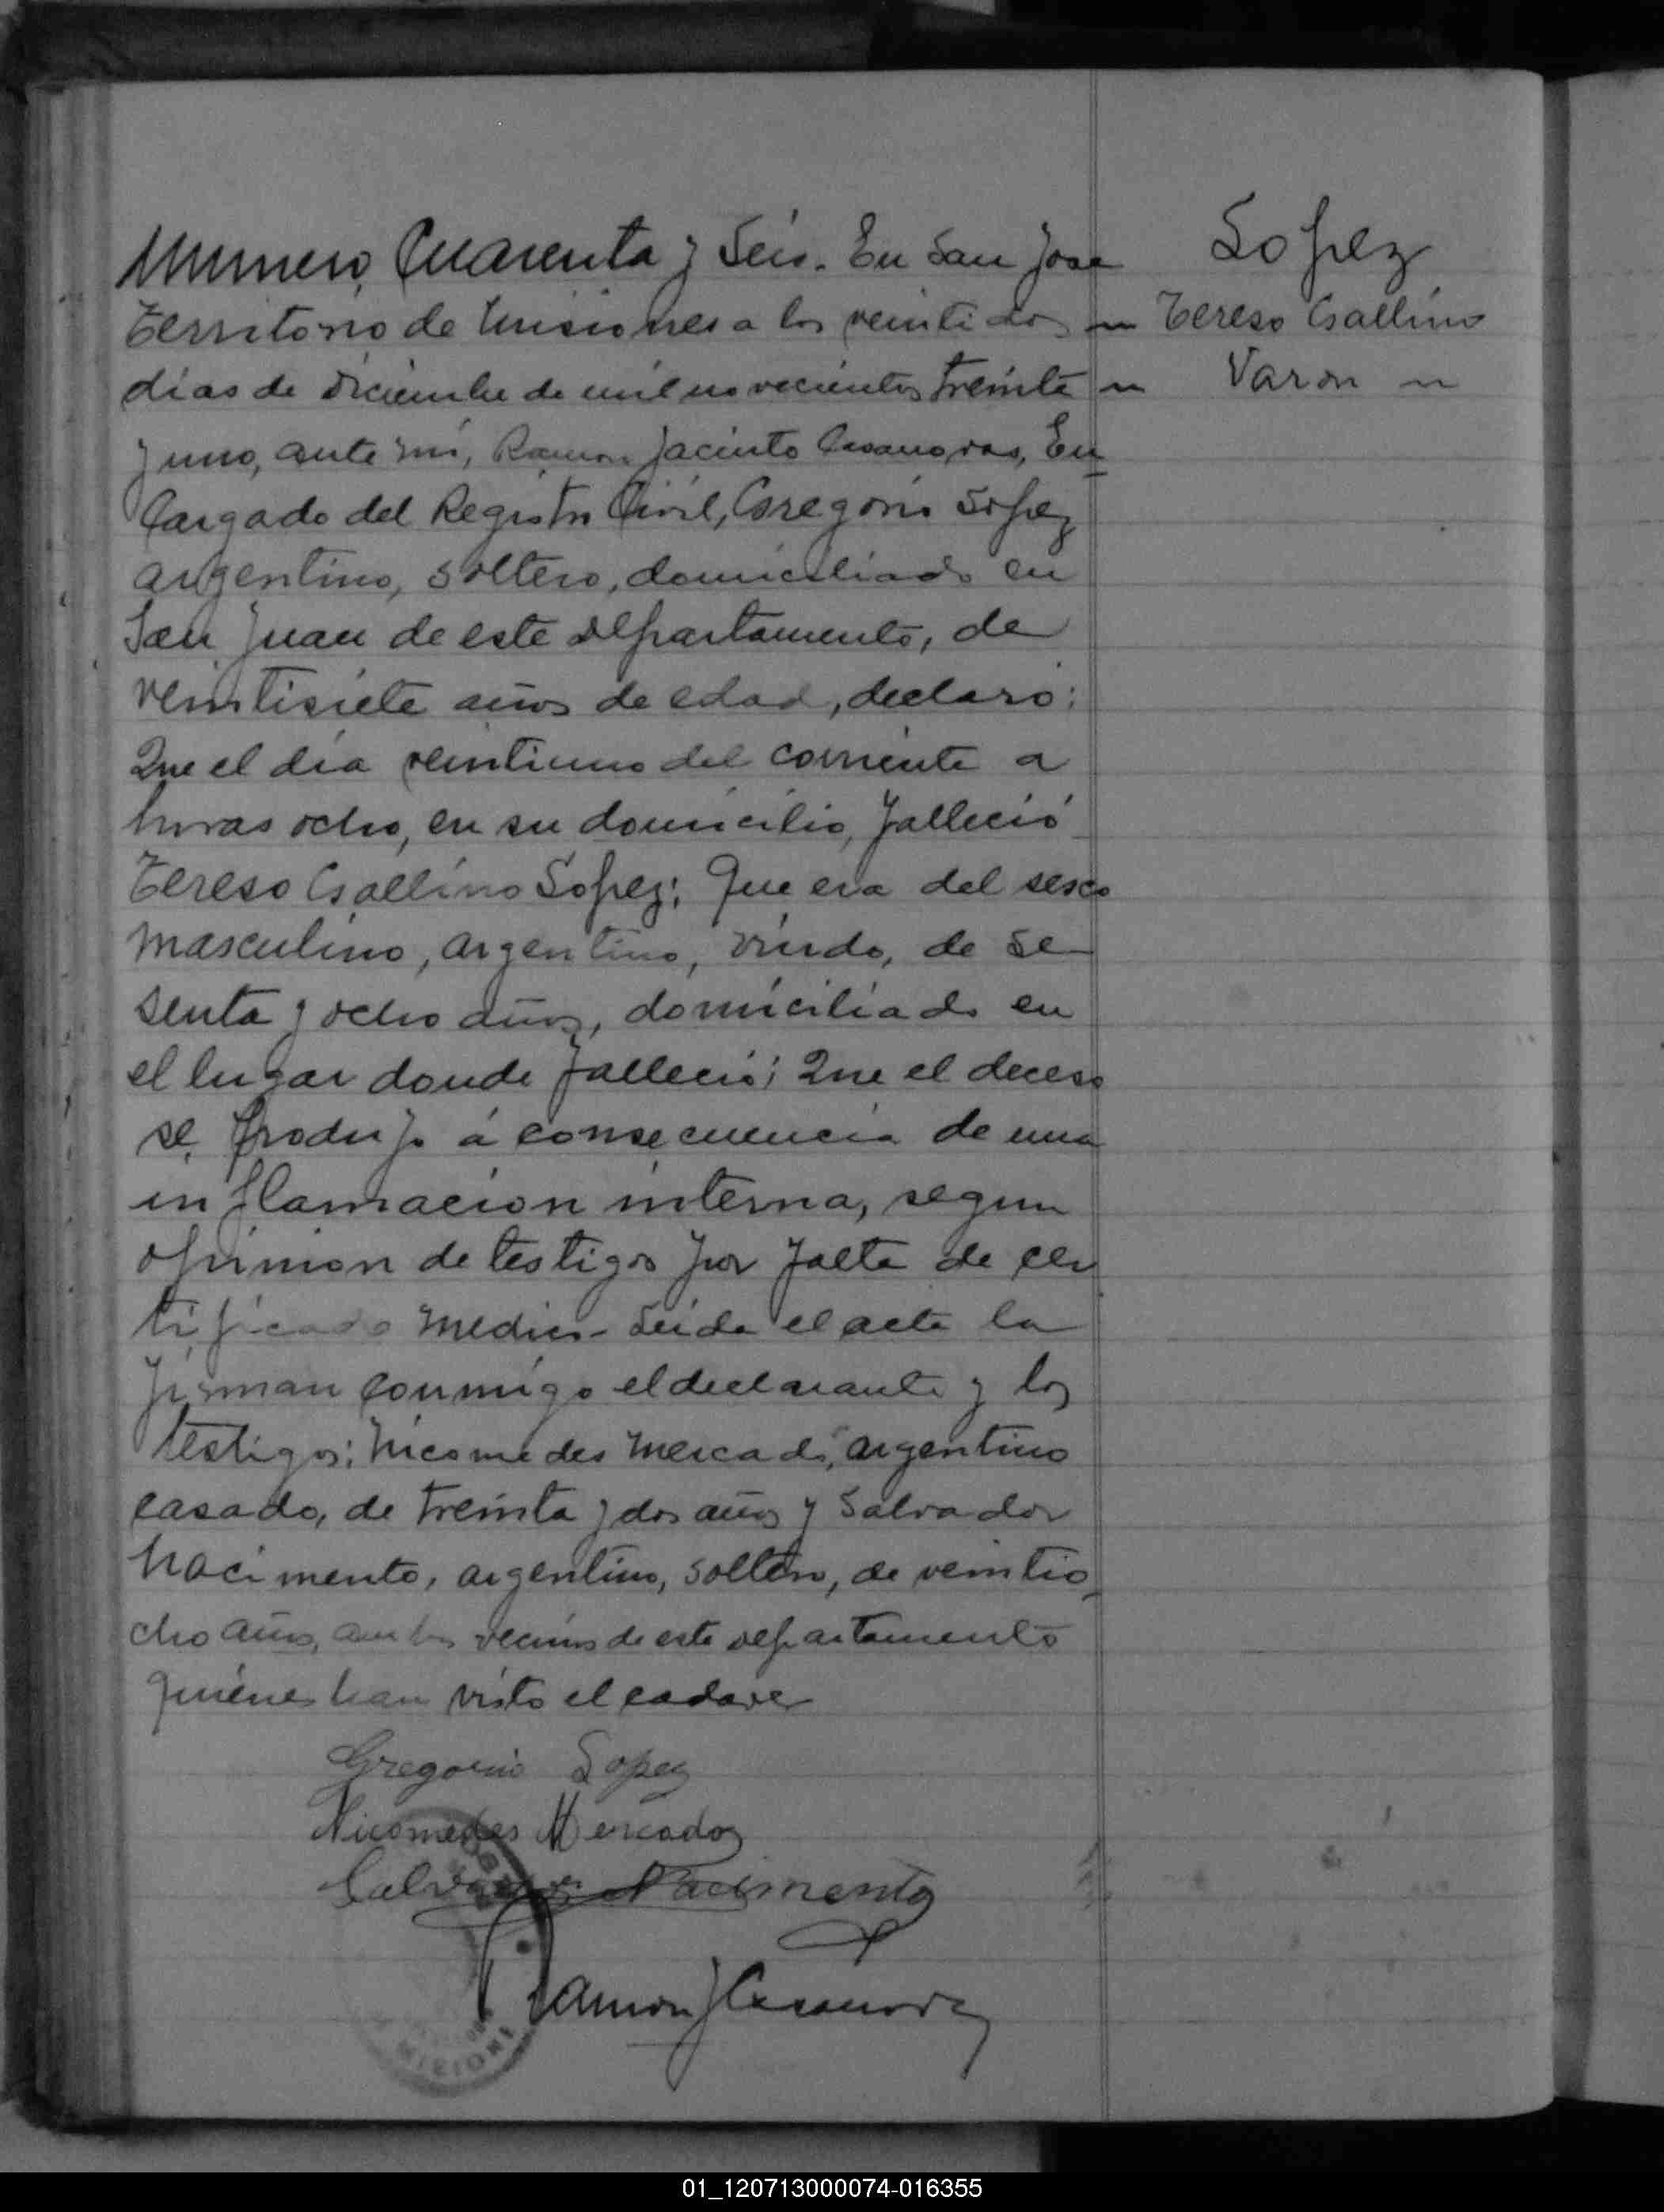 Numero, Cuarenta y Seis. En San Jose
Territorio de Misiones a los veintidos
dias de Diciembre de mil novecientos treinta
y uno, ante mi, Ramon Jacinto Casanovas, En
cargado del Registro Civil, Gregorio Lopez
argentino, soltero, domiciliado en
San Juan de este departamento, de
veintisiete años de edad, declaró:
Que el dia veintiuno del corriente a
horas ocho, en su domicilio, falleció
Tereso Gallino Lopez; Que era del sesco
masculino, argentino, viudo, de se
senta y ocho años, domiciliado en
el lugar donde falleció; Que el deceso
se produjo á consecuencia de una
inflamacion interna, segun
opinion de testigos por falta de cer
tificado medico- Leida el acta la
firman conmigo el declarante y los
testigos; Nicomedes Mercado, argentino
casado, de treinta y dos años y Salvador
Nacimento, argentino, soltero, de veintio
cho años, ambos vecinos de este departamento
quienes han visto el cadaver
Gregorio Lopez
Nicomedes Mercado
Salvador Nacimento
Ramon J Casanovas
MISIONES
Lopez
Tereso Gallino
Varon
01_120713000074-016355